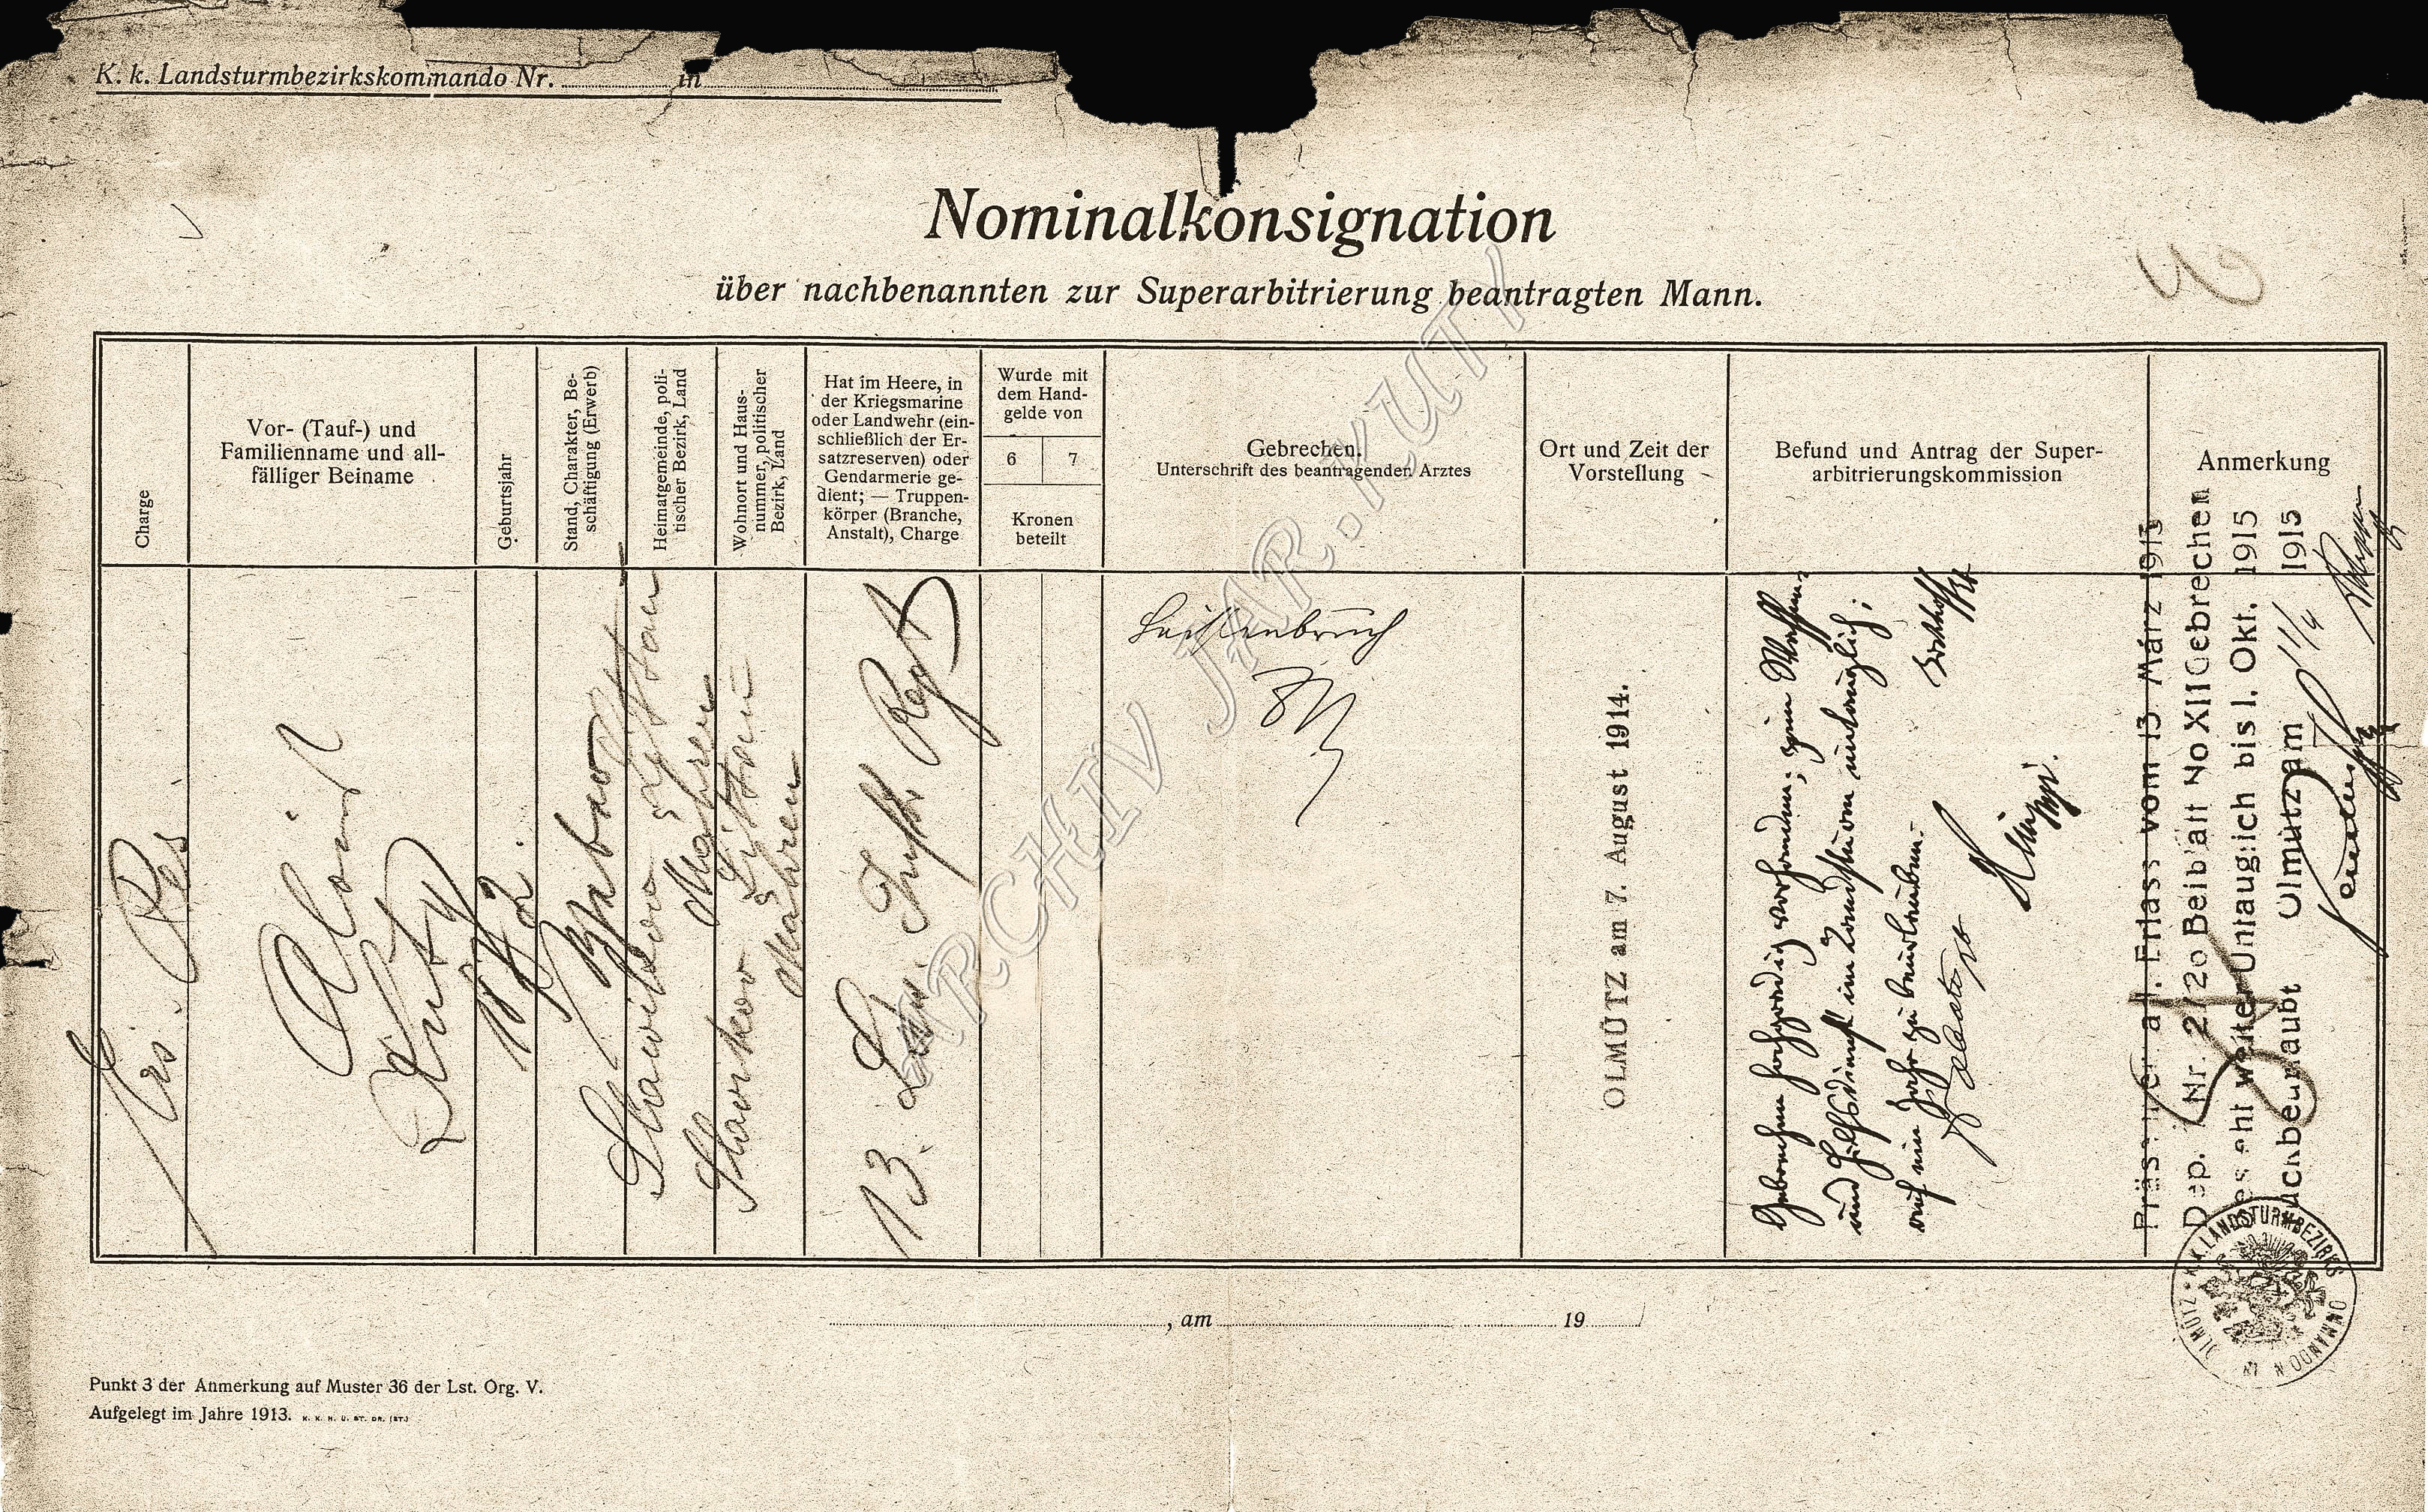 K. k. Landsturmbezirkskommando Nr. in
Nominalkonsignation
über nachbenannten zur Superarbitrierung beantragten Mann.
Charge
Vor- (Tauf-) und
Familienname und all-
fälliger Beiname
Geburtsjahr
Stand, Charakter, Be-
schäftigung (Erwerb)
Heimatgemeinde, poli-
tischer Bezirk, Land
Wohnort und Haus-
nummer, politischer
Bezirk, Land
Hat im Heere, in
der Kriegsmarine
oder Landwehr (ein-
schließlich der Er-
satzreserven) oder
Gendarmerie ge-
dient; — Truppen-
körper (Branche,
Anstalt), Charge
Wurde mit
dem Hand-
gelde von
6 7
Kronen
beteilt
Gebrechen.
Unterschrift des beantragenden Arztes
Ort und Zeit der
Vorstellung
Befund und Antrag der Super-
arbitrierungskommission
Anmerkung
Ers. Res
Alois
Kutý
Littau
Mähren
Littau
Mähren
13. Lin. Inft. Regt
Leistenbruch
OLMÜTZ am 7. August 1914.
Gebrechen hochgradig vorhanden; zum Waffen-
und Hilfsdienst im Landsturm untauglich;
auf ein Jahr zu beurlauben.
Präs. a. l. Erlass vom 13 März 1915
Dep. Nr. 2720 Beiblatt No XII Gebrechen
weiter Untauglich bis 1. Okt. 1915
rückbeurlaubt Olmütz am 1/4 1915
K.K. LANDSTURMBEZIRKS KOMMANDO N IN OLMÜTZ
, am 19
Punkt 3 der Anmerkung auf Muster 36 der Lst. Org. V.
Aufgelegt im Jahre 1913. K. K. H. U. ST. DR. (ST.)
ARCHIV JAR. KUTÝ